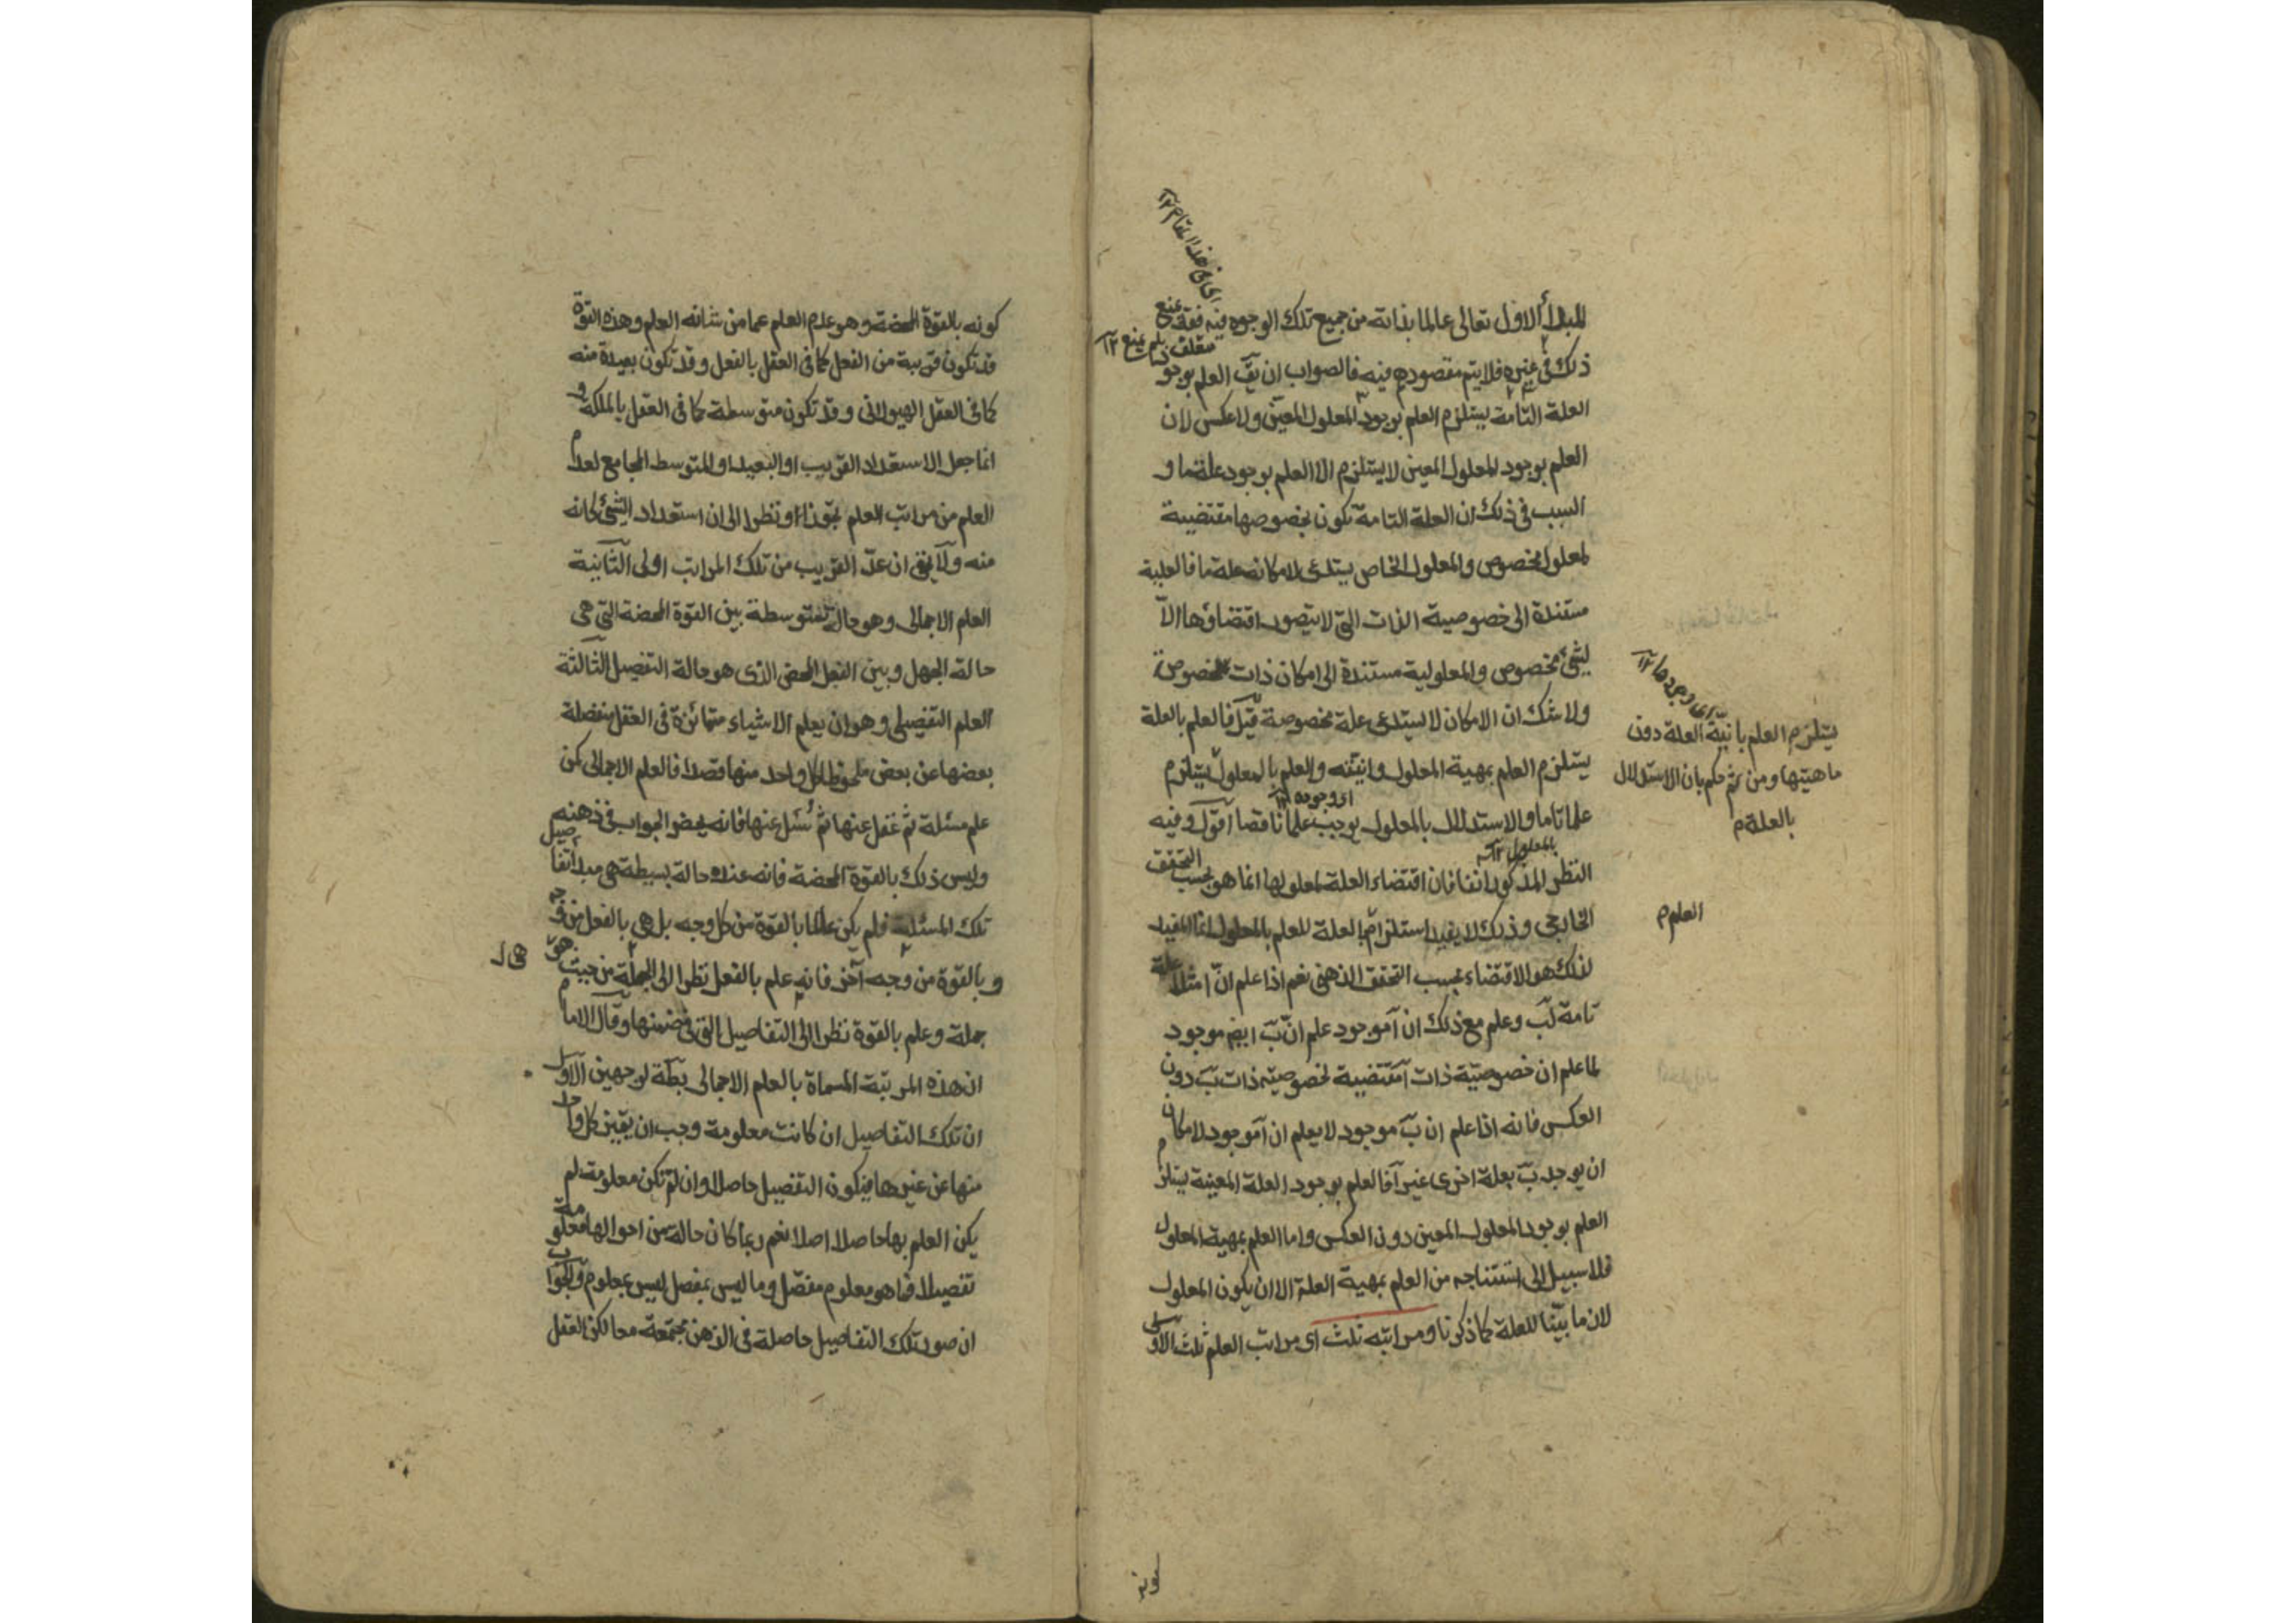 المبدأ الاول تعالى عالما بذاته من جميع تلك الوجوه فيه فقد يمنع
ذلك فى غيره فلا يتم مقصودهم فيه فالصواب ان يقٓ العلم بوجود
العلة التامة يستلزم العلم بوجود المعلول المعين ولا عكس لان
العلم بوجود المعلول المعين لا يستلزم الا العلم بوجود علة ما و
السبب فى ذلك ان العلة التامة تكون بخصوصها مقتضية
لمعلول مخصوص والمعلول الخاص يستدعى لامكانه علة ما فالعلية
مستندة الى خصوصية الذات التى لا يتصور اقتضاؤها الا
لشئ مخصوص والمعلولية مستندة الى امكان ذات المخصوص
ولا شك ان الامكان لا يستدعى علة مخصوصة قيل فالعلم بالعلة
يستلزم العلم بمهية المعلول وانيته والعلم بالمعلول يستلزم
علما تاما والاستدلال بالمعلول يوجب علما ناقصا اقول وفيه
النظر المذكور انفا فان اقتضاء العلة لمعلولها انما هو بحسب التحقق
الخارجى وذلك لا يفيد استلزام العلة للعلم بالمعلول انما المفيد
لذلك هو الاقتضاء بحسب التحقق الذهنى نعم اذا علم انّ ا مثلا علة
تامة لبٓ وعلم مع ذلك ان آ موجود علم انّ بٓ ايضا موجود
لما علم ان خصوصية ذات آ مقتضية لخصوصية ذات بٓ دون
العكس فانه اذا علم ان بٓ موجود لا يعلم ان آ موجود لامكان
ان يوجد بٓ بعلة اخرى غير آ فالعلم بوجود العلة المعينة يستلزم
العلم بوجود المعلول المعين دون العكس واما العلم بمهية المعلول
فلا سبيل الى استنتاجه من العلم بمهية العلة الا ان يكون المعلول
لازما بينا للعلة كما ذكرنا ومراتبه ثلث اى مراتب العلم ثلث الاولى
اى فى هذا المقام ١٢
اى وجودها ١٢
يستلزم العلم بانية العلة دون
ماهيتها ومن ثم حكم بان الاستدلال
بالعلة م
اى وجوده ١٢
بالمعلول ١٢
العلم م
كونه بالقوة المحضة وهو عدم العلم عما من شانه العلم وهذه القوة
قد تكون قريبة من الفعل كما فى العقل بالفعل وقد تكون بعيدة منه
كما فى العقل الهيولانى وقد تكون متوسطة كما فى العقل بالملكة و
انما جعل الاستعداد القريب او البعيد او المتوسط المجامع لعدم
العلم من مراتب العلم تجوزا او نظرا الى ان استعداد الشئ كانه
منه ولا يخفى ان عدّ القريب من تلك المراتب اولى الثانية
العلم الاجمالى وهو حالة متوسطة بين القوة المحضة التى هى
حالة الجهل وبين الفعل المحض الذى هو حالة التفصيل الثالثة
العلم التفصيلى وهو ان يعلم الاشياء متمائزة فى العقل منفصلة
بعضها عن بعض ملحوظا كل واحد منها قصدا فالعلم الاجمالى كمن
علم مسئلة ثم غفل عنها ثم سُئل عنها فانه يحضر الجواب فى ذهنه
وليس ذلك بالقوة المحضة فانه عنده حالة بسيطة هى مبدأ تفاصيل
تلك المسئلة فلم يكن عالما بالقوة من كل وجه بل هى بالفعل من وجه
وبالقوة من وجه آخر فانه علم بالفعل نظرا الى الجملة من حيث هو
جملة وعلم بالقوة نظرا الى التفاصيل التى فى ضمنها وقال الامام
ان هذه المرتبة المسماة بالعلم الاجمالى بط لوجهين الاول
ان تلك التفاصيل ان كانت معلومة وجب ان يتميز كل واحد
منها عن غيرها فيكون التفصيل حاصلا وان لم تكن معلومة لم
يكن العلم بها حاصلا اصلا نعم ربما كان حالة من احوالها معلومة
تفصيلا فما هو معلوم مفصل وما ليس بمفصل ليس بمعلوم والجواب
ان صور تلك التفاصيل حاصلة فى الذهن مجتمعة معا لكن العقل